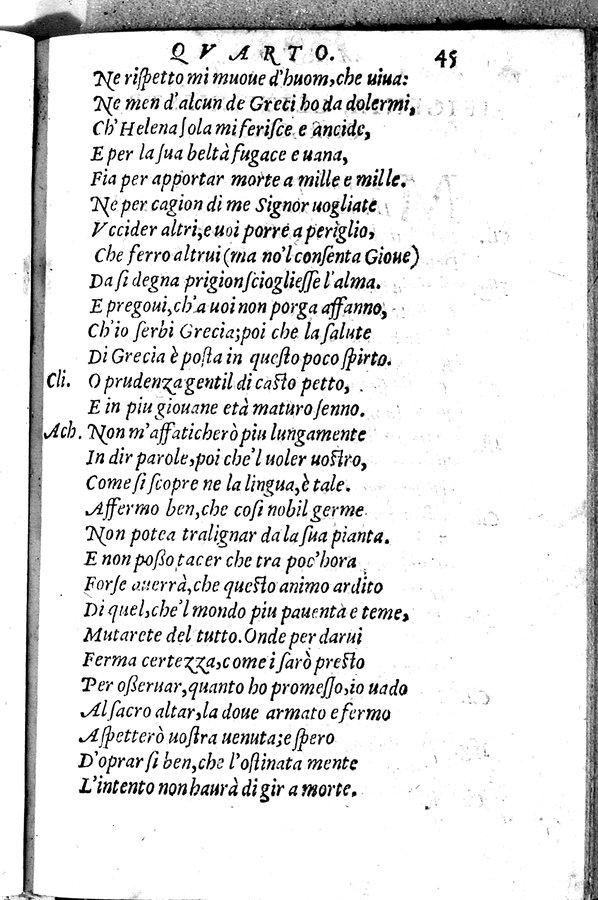 QVARTO. 45
Ne rispetto mi muoue d'huom, che uiua:
Ne men d'alcun de Greci ho da dolermi,
Ch'Helena sola mi ferisce e ancide,
E per la sua beltà fugace e uana,
Fia per apportar morte a mille e mille.
Ne per cagion di me Signor uogliate
Vccider altri, e uoi porre a periglio,
Che ferro altrui (ma no'l consenta Gioue)
Da si degna prigion sciogliesse l'alma.
E pregoui, ch'a uoi non porga affanno,
Ch'io serbi Grecia; poi che la salute
Di Grecia è posta in questo poco spirto.
Cli. O prudenza gentil di casto petto,
E in piu giouane età maturo senno.
Ach. Non m'affaticherò piu lungamente
In dir parole, poi che'l uoler uostro,
Come si scopre ne la lingua, è tale.
Affermo ben, che cosi nobil germe
Non potea tralignar da la sua pianta.
E non posso tacer che tra poc'hora
Forse auerrà, che questo animo ardito
Di quel, che'l mondo piu pauenta e teme,
Mutarete del tutto. Onde per darui
Ferma certezza, come i sarò presto
Per osseruar, quanto ho promesso, io uado
Al sacro altar, la doue armato e fermo
Aspetterò uostra uenuta; e spero
D'oprar si ben, che l'ostinata mente
L'intento non haurà di gir a morte.